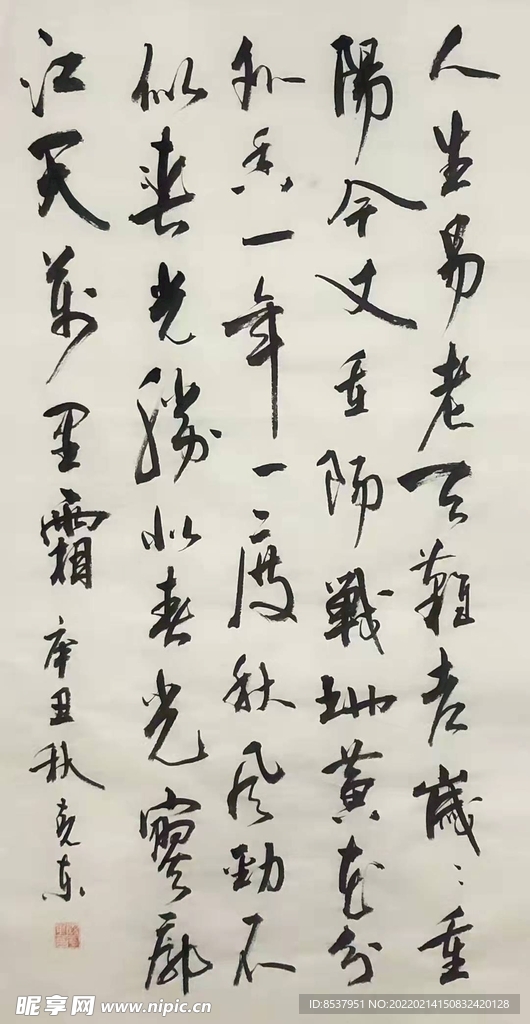 人生易老天難老歲〻重
陽今又重陽戰地黃花分
外香一年一度秋風勁不
似春光勝似春光寥廓
江天萬里霜 辛丑秋
昵享网 www.nipic.cn
ID:8537951 NO:20220214150832420128